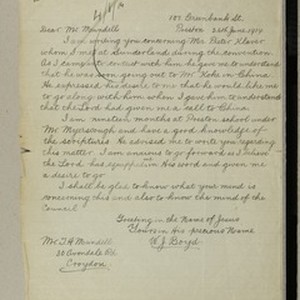 Brunbank St.
Dear Mr. Mundell
Preston 25th June 1914
I am writing you concerning Mr. Peter Klaver
whom I met at Sunderland during the convention.
As I came into contact with him he gave me to understand
that he was soon going out to Mr Koke in China.
He expressed his desire to me that he would like me
to go along with him when I gave him to understand
that the Lord had given me a call to China.
I am nineteen months at Preston school under
Mr Myerscough and have a good knowledge of
the scriptures. He advised me to write you regarding
this matter. I am anxious to go forward as I believe
the Lord has equipped me in His word and given me
a desire to go.
I shall be glad to know what your mind is
concerning this and also to know the mind of the
Council
Greeting in the Name of Jesus
Yours in His precious Name
W. J. Boyd
Mr. T. H. Mundell
30 Avondale Rd.
Croydon